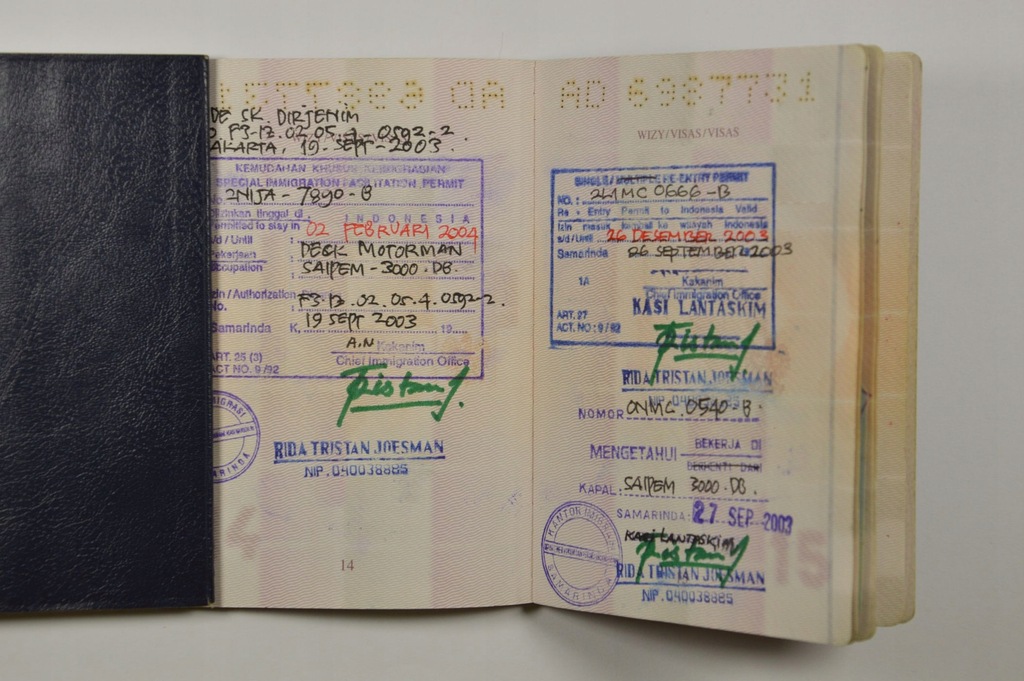 DE SK. DIRJENIM
F3-12.02.05.4.0592-2
AKARTA, 19. SEPT. 2003.
KEMUDAHAN KHUSUS KEIMIGRASIAN
SPECIAL IMMIGRATION FACILITATION PERMIT
No. 2NIJA - 7890 - B
Diizinkan tinggal di : INDONESIA
Permitted to stay in
s/d / Until : 02 FEBRUARI 2004
Pekerjaan : DECK MOTORMAN
Occupation SAIPEM - 3000. DB.
Izin / Authorization
No. : F3.12.02.05.4.0592-2.
19 SEPT 2003
Samarinda K, 19
A.N Kakanim
Chief Immigration Office
ART. 25 (3)
ACT NO. 9/92
RIDA TRISTAN JOESMAN
NIP. 040038885
IMIGRASI
SAMARINDA
14
AD 6967731
WIZY/VISAS/VISAS
SINGLE / MULTIPLE RE-ENTRY PERMIT
NO. : 2LAMC 0666-B
Re - Entry Permit to Indonesia Valid
Izin masuk kembali ke wilayah Indonesia
s/d / Until : 26 DESEMBER 2003
Samarinda 26 SEPTEMBER 2003
1A Kakanim
Chief Immigration Office
ART. 27 KASI LANTASKIM
ACT. NO : 9 / 92
RIDA TRISTAN JOESMAN
NOMOR ONMC.0540-B.
MENGETAHUI BEKERJA DI
BERHENTI DARI
KAPAL SAIPEM 3000.DB.
SAMARINDA: 27 SEP 2003
KASI LANTASKIM
RIDA TRISTAN JOESMAN
NIP. 040038885
KANTOR IMIGRASI
SAMARINDA
15